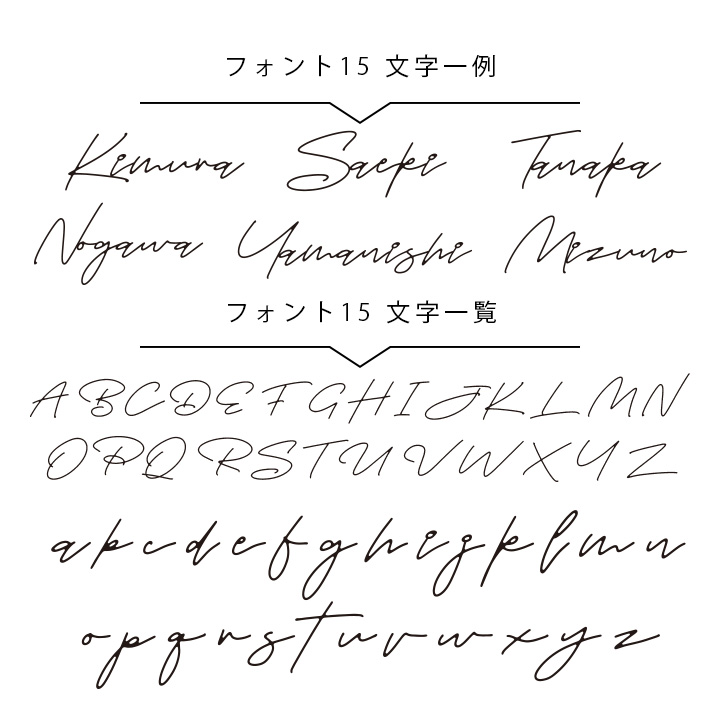 フォント15 文字一例
Kimura Saeki Tanaka
Nogawa Yamanishi Mizuno
フォント15 文字一覧
A B C D E F G H I J K L M N
O P Q R S T U V W X Y Z
a b c d e f g h i j k l m n
o p q r s t u v w x y z